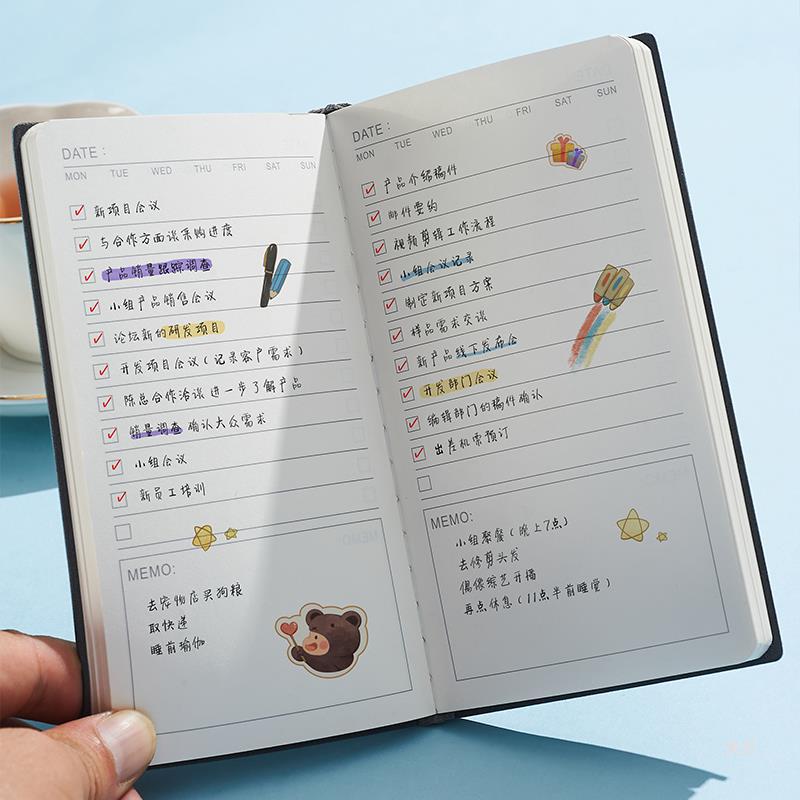 DATE：
MON TUE WED THU FRI SAT SUN
新项目会议
与合作方面谈采购进度
产品销量跟踪调查
小组产品销售会议
论坛新的研发项目
开发项目会议(记录客户需求)
陈总合作洽谈进一步了解产品
销量调查确认大众需求
小组会议
新员工培训
MEMO:
去宠物店买狗粮
取快递
睡前瑜伽
DATE：
MON TUE WED THU FRI SAT SUN
产品介绍稿件
邮件要约
视频剪辑工作流程
小组会议记录
制定新项目方案
样品需求交谈
新产品线下发布会
开发部门会议
编辑部门的稿件确认
出差机票预订
MEMO:
小组聚餐(晚上7点)
去修剪头发
偶像综艺开播
再点休息(11点半前睡觉)